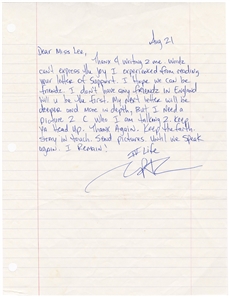 Aug 21
Dear Miss Lee,
Thanx 4 writing 2 me. Words
can't express the joy I experienced from receiving
your letter of Support. I hope we can be
friendz. I don't have any friendz in England
till u be the first. My next letter will be
deeper and more in depth. But, I need a
picture 2 C who I am talking 2. Keep
Ya Head Up. Thank Again. Keep the faith.
Stay in touch. Send pictures. Until we Speak
again. I Remain!
Life